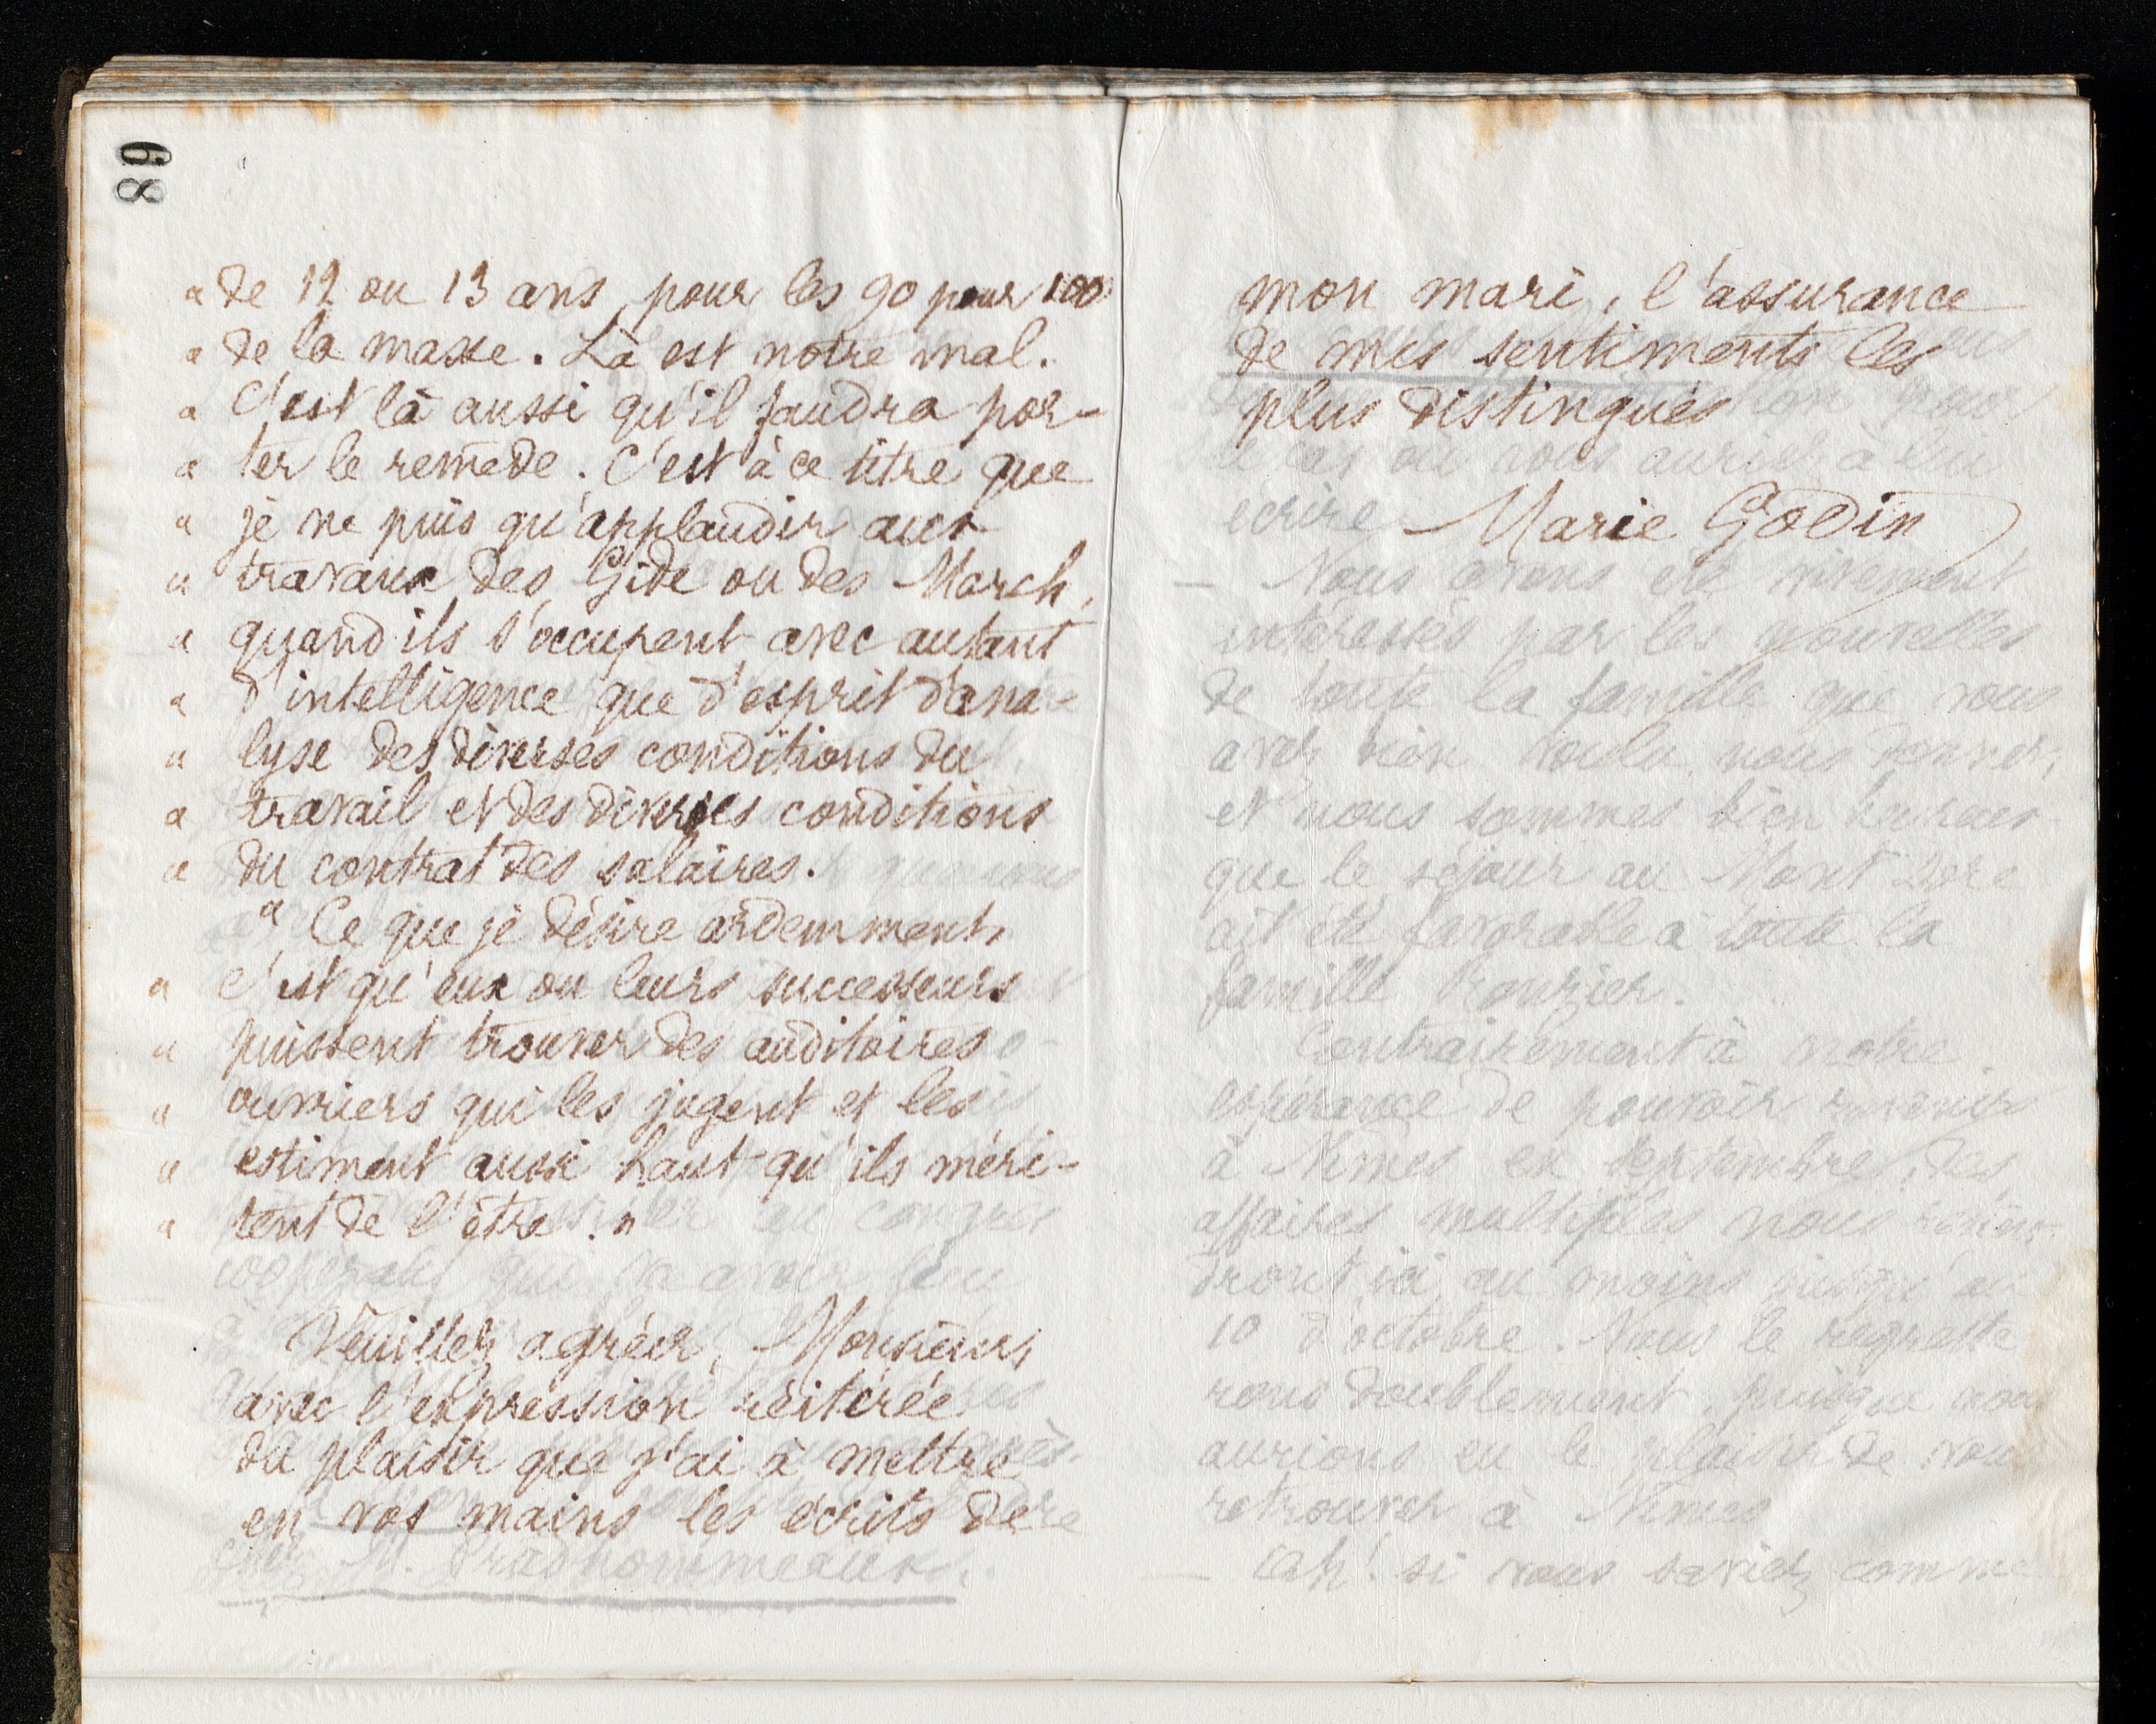 89
" de 12 ou 13 ans, pour les 90 pour 100
" de la masse. Là est notre mal.
" C'est là aussi qu'il faudra por-
" ter le remède. C'est à ce titre que
" je ne puis qu'applaudir aux
" travaux des Gide ou des March,
" quand ils s'occupent avec autant
" d'intelligence que d'esprit d'ana-
" lyse des diverses conditions du
" travail et des diverses conditions
" du contrat des salaires.
" Ce que je désire ardemment,
" c'est qu'eux ou leurs successeurs
" puissent trouver des auditoires
" ouvriers qui les jugent et les
" estiment aussi haut qu'ils méri-
" tent de l'être. "
Veuillez agréer, Monsieur,
avec l'expression réitérée
du plaisir que j'ai à mettre
en vos mains les écrits de
chez M. Prudhommeaux.
mon mari, l'assurance
de mes sentiments les
plus distingués
Marie Godin
le cas où vous auriez à lui
écrire
— Nous avons été vivement
intéressés par les nouvelles
de toute la famille que vous
avez bien voulu nous donner,
et nous sommes bien heureux
que le séjour au Mont Dore
ait été favorable à toute la
famille
Contrairement à notre
espérance de pouvoir revenir
à Nîmes en septembre, des
affaires multiples nous retien-
dront ici au moins jusqu'au
10 d'octobre. Nous le regrette
rons doublement, puisque nous
aurions eu le plaisir de vous
retrouver à Nîmes
— Ah! si vous saviez comme